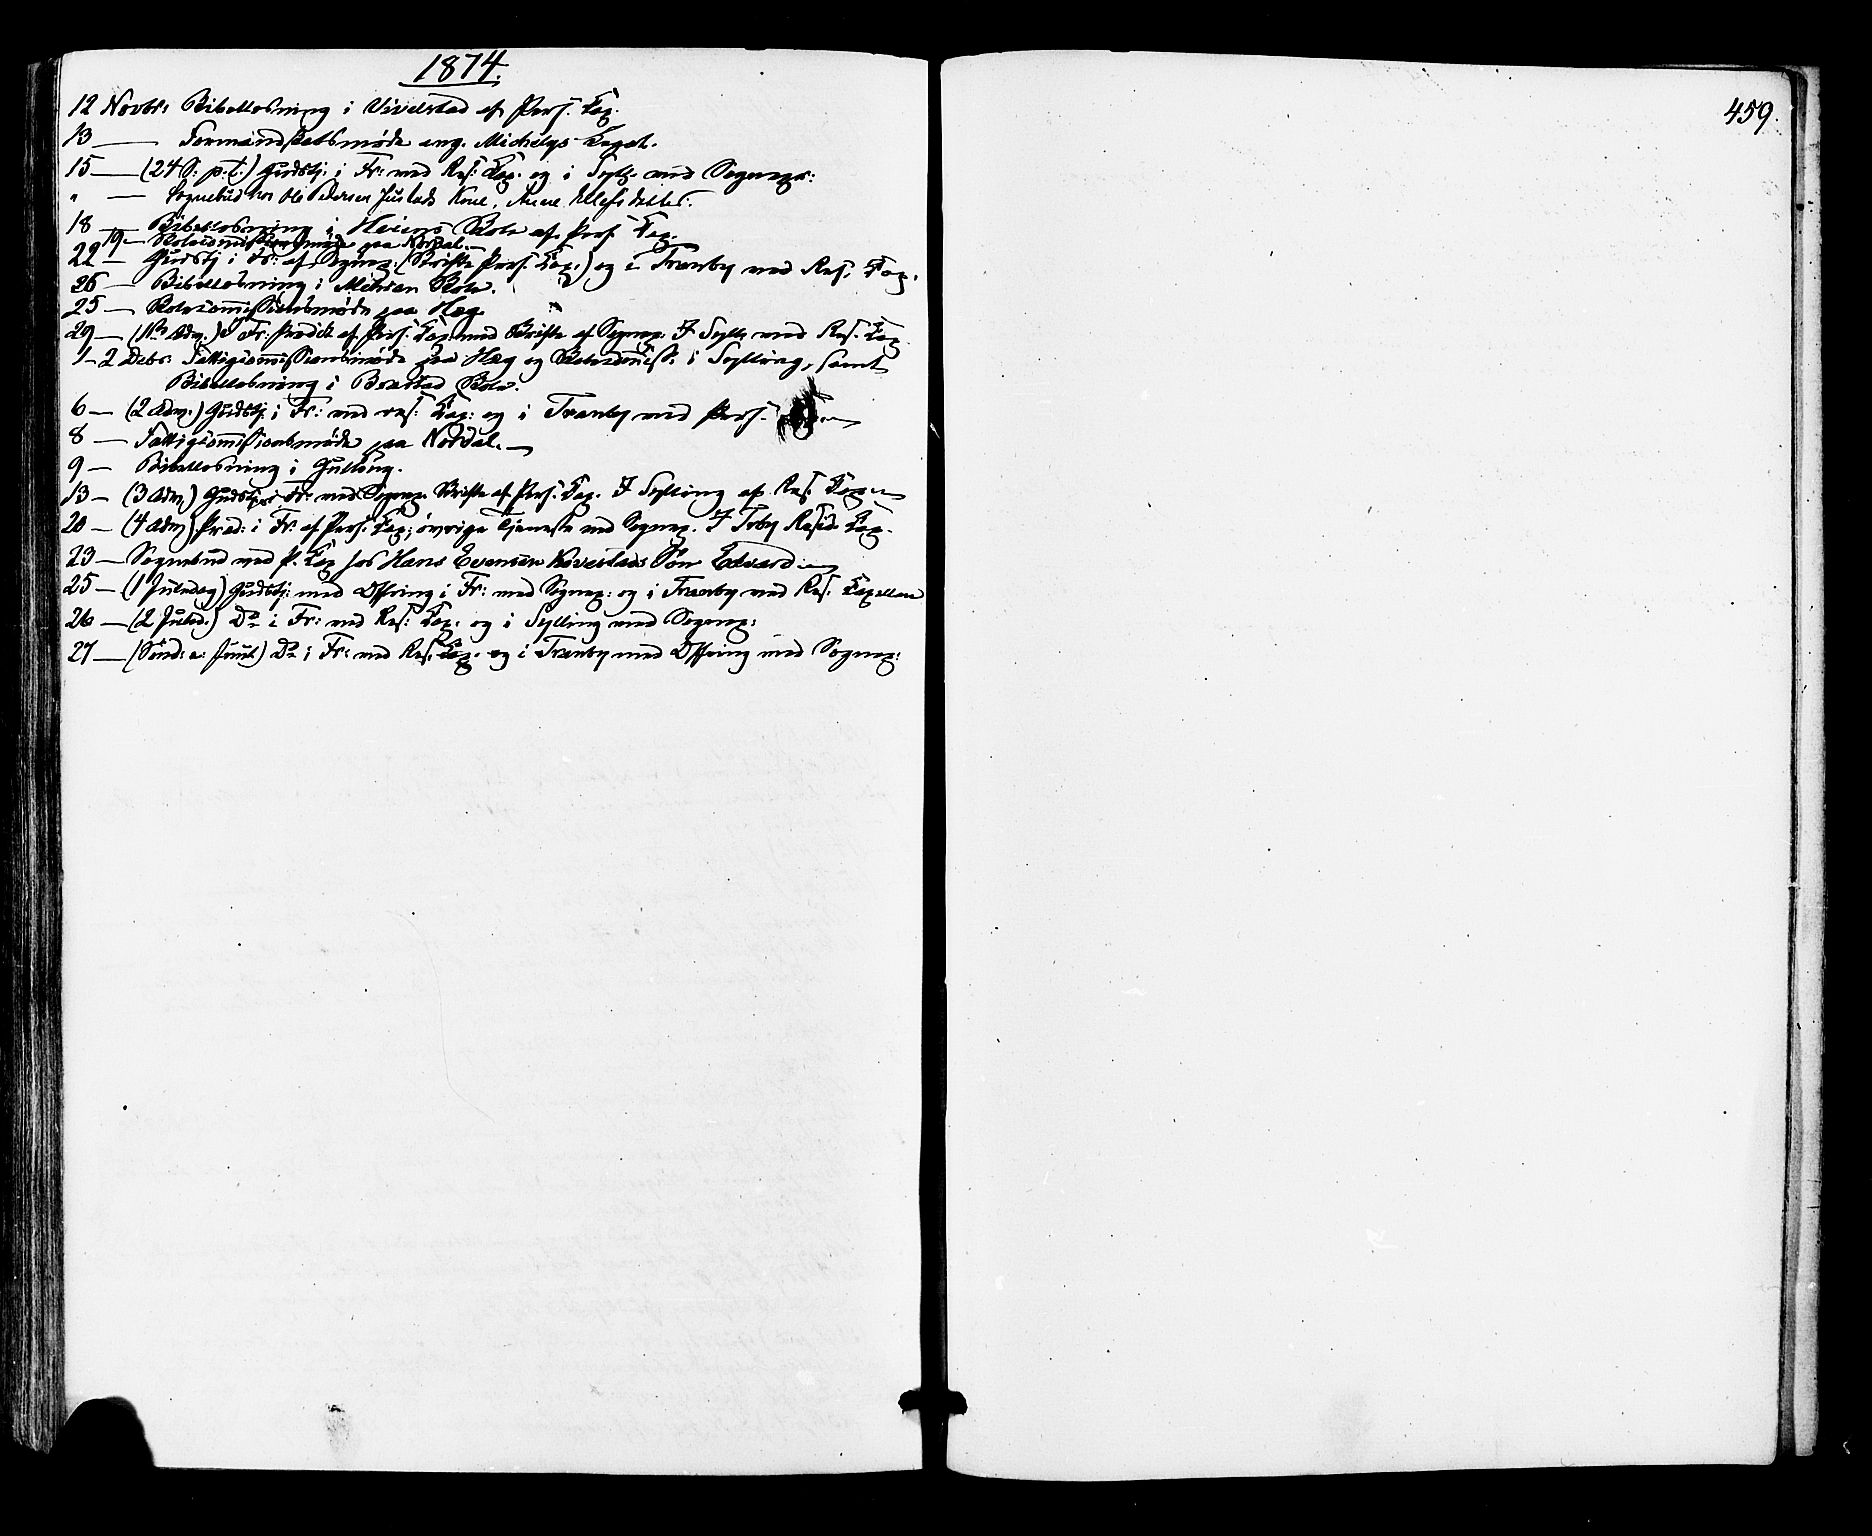 1874.
12 Novbr: Bibellæsning i Vivelstad af Pers. Cap.
13 — Formandskabsmøde ang. Michelys Legat.
15 — (24 S. p. t.) Gudstj. i Fr: med Res: Cap. og i Syll: med Sognepr:
" — Sognebud hos Ole Pedersen Justads Kone, Anne Ellefsdatter.
18 — Bibellæsning i Heiens Skole af Pers. Cap.
19 — Skolecommissionsmøde paa Nordal. —
22 — Gudstj i Fr: af Sognepr. (Skrifte Pers. Cap.) og i Tranby med Res. Cap.
26 — Bibellæsning i Mehren Skole.
25 — Skolecommissionsmøde paa Hæg.
29 — (1ste Adv.) I Fr: Prædik af Pers. Cap. med Skrifte af Sognepr. I Sylls med Res. Cap
1-2 Debr: Fattigcommissionsmøde paa Hæg og Skolecommiss: i Sylling, samt
Bibellæsning i Brastad Skole.
6 — (2 Adv.) Gudstj: i Fr: med res: Cap: og i Tranby med Pers.
8 — Fattigcommissionsmøde paa Nordal. —
9 — Bibellæsning i Gulloug.
13 — (3 Adv.) Gudstj. i Fr: med Sognepr. Skrifte af Pers. Cap. I Sylling af Res: Cap
20 — (4 Adv) Præd: i Fr. af Pers. Cap; øvrige Tjeneste ved Sognepr. I Trby Resid. Cap.
23 — Sognebud ved P. Cap hos Hans Evensen Kovestads Søn Edvard
25 — (1 Juledag) Gudstj: med Offring i Fr: med Sognepr: og i Tranby med Res. Capellan
26 — (2 Juled.) Do i Fr: med Res: Cap. og i Sylling med Sognepr:
27 — (Sønd: e: Juul) Do i Fr: med Res. Cap. og i Tranby med Offring med Sognepr:
459.